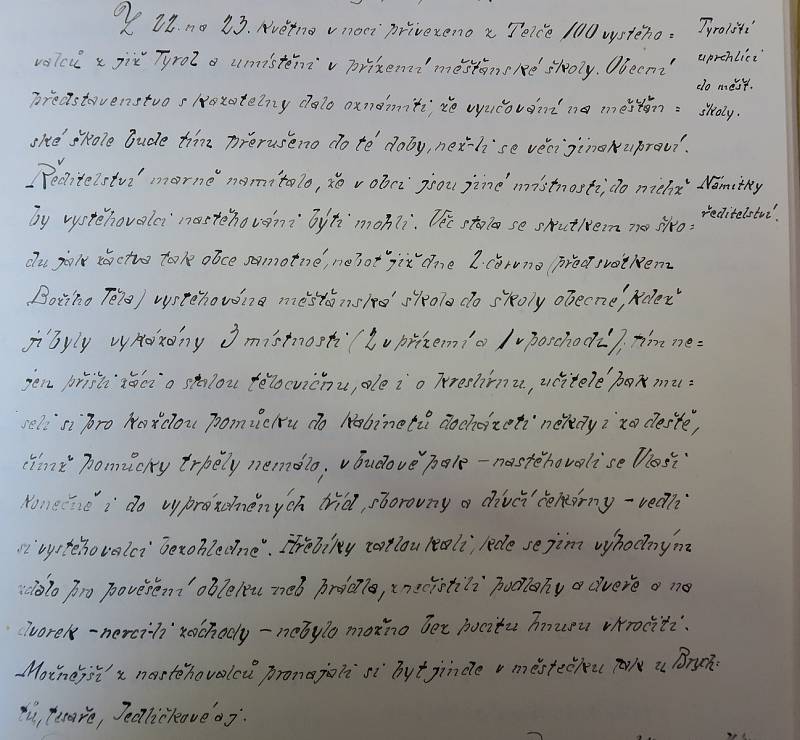 Z 22. na 23. května v noci přivezeno z Telče 100 vystěho=
valců z již. Tyrol a umístěni v přízemí měšťanské školy. Obecní
představenstvo s kazatelny dalo oznámiti, že vyučování na měšťan=
ské škole bude tím přerušeno do té doby, než-li se věci jinak upraví.
Ředitelství marně namítalo, že v obci jsou jiné místnosti, do nichž
by vystěhovalci nastěhováni býti mohli. Věc stala se skutkem na ško=
du jak žactva tak obce samotné, neboť již dne 2. června (před svátkem
Božího Těla) vystěhována měšťanská škola do školy obecné, kdež
jí byly vykázány 3 místnosti (2 v přízemí a 1 v poschodí); tím ne=
jen přišli žáci o stalou tělocvičnu, ale i o kreslírnu, učitelé pak mu=
seli si pro každou pomůcku do kabinetů docházeti někdy i za deště,
čímž pomůcky trpěly nemálo; v budově pak – nastěhovali se Vlaši
konečně i do vyprázdněných tříd, sborovny a dívčí čekárny – vedli
si vystěhovalci bezohledně. Hřebíky zatloukali, kde se jim výhodným
zdálo pro pověšení obleku neb prádla, znečistili podlahy a dveře a na
dvorek – nerci-li záchody – nebylo možno bez pocitu hnusu vkročiti.
Možnější z nastěhovalců pronajali si byt jinde v městečku tak u Brych=
tů, tesaře, Jedličkové a j.
Tyrolští
uprchlíci
do měšť.
školy.
Námitky
ředitelství.